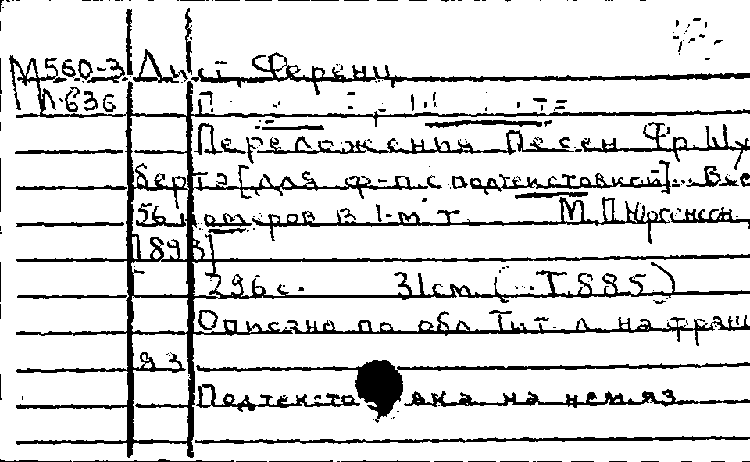 М560-3 Лист, Ференц
Л.636
Переложения Песен Фр. Шу
берта [для ф-п. с подтекстовкой]. Все
56 номеров в 1-м т. М. П. Юргенсон,
[1893]
296 с. 31 см. (... Т.885)
Описано по обл. Тит. л. на франц
93
Подтексто вка на нем. яз.